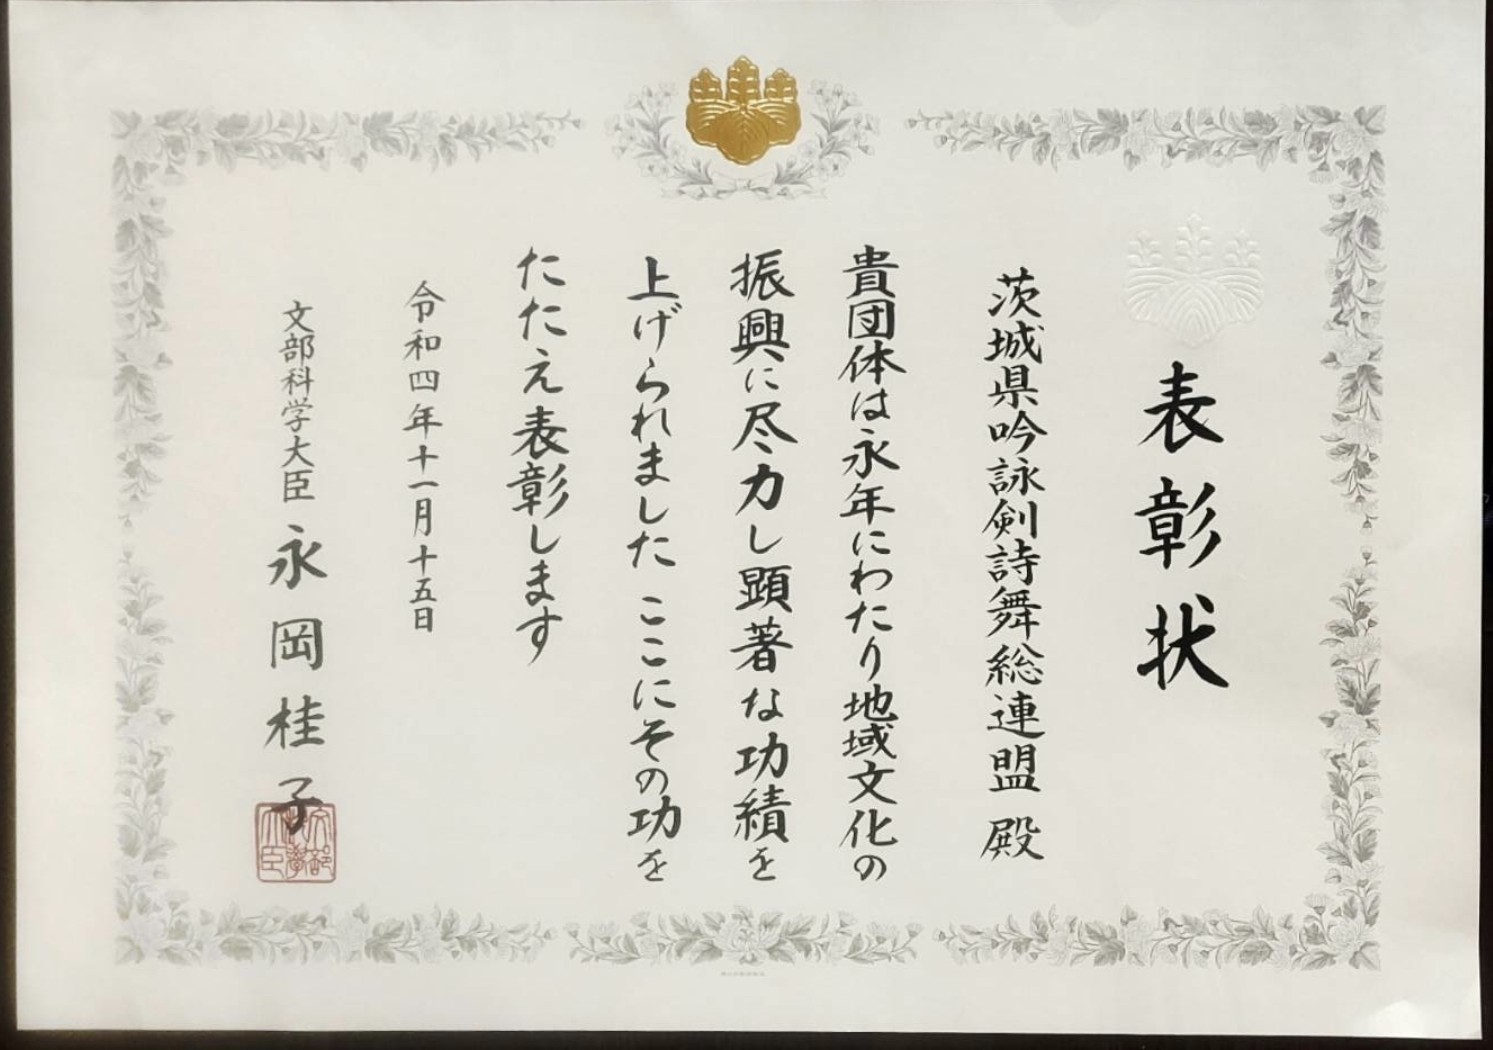 表彰状
茨城県吟詠剣詩舞総連盟 殿
貴団体は永年にわたり地域文化の
振興に尽力し顕著な功績を
上げられました ここにその功を
たたえ表彰します
令和四年十一月十五日
文部科学大臣 永岡桂子